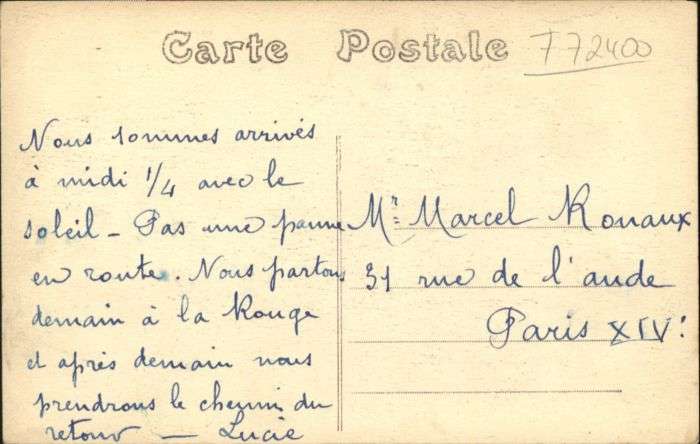 Carte Postale
772400
Nous sommes arrivés
à midi 1/4 avec le
soleil - Pas une panne
en route. Nous partons
demain à la Rouge
et après demain nous
prendrons le chemin du
retour - Lucie
Mr Marcel Rouaux
31 rue de l'aude
Paris XIV!